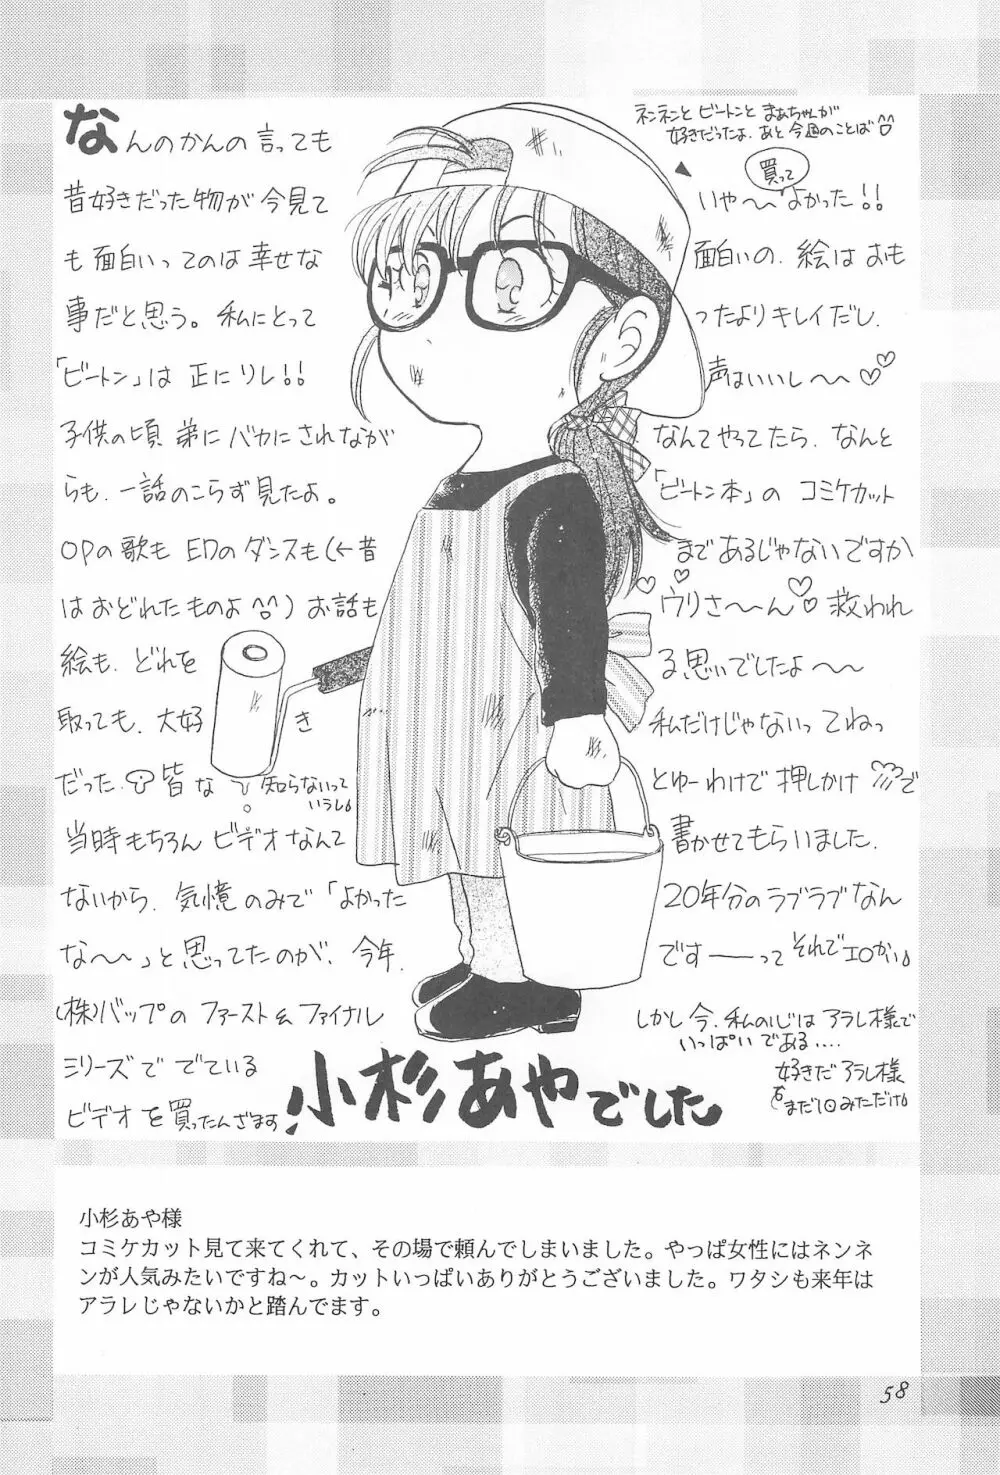 なんのかんの言っても
昔好きだった物が今見て
も面白いってのは幸せな
事だと思う。私にとって
「ビートン」は正にソレ!!
子供の頃弟にバカにされなが
らも、一話のこらず見たよ。
OPの歌も EDのダンスも(←昔
はおどれたものよ)お話も
絵も、どれを
取っても、大好き
だった。皆な知らないって
いうしね
当時もちろんビデオなんて
ないから、気憶のみで「よかった
な〜〜」と思ってたのが、今年、
(株)バップの ファースト& ファイナル
シリーズで でている
ビデオを買ったんざます!
ネンネンと ビートンと まぁちゃんが
好きだったよ、あと今週のことば
いや〜〜買ってよかった!!
面白いの、絵はおも
ったよりキレイだし、
声はいいし〜〜♡♡
なんてやってたら、なんと
「ビートン本」の コミケカット
まであるじゃないですか
♡♡ウリさ〜〜ん♡♡救われ
る思いでしたよ〜〜
私だけじゃないってねっ
とゆーわけで押しかけで
書かせてもらいました。
20年分のラブラブなん
です──って それでエロかい
しかし今、私の心は アラレ様で
いっぱいである....
好きだアラレ様
をまだ1回みただけ
小杉あやでした
小杉あや様
コミケカット見て来てくれて、その場で頼んでしまいました。やっぱ女性にはネンネ
ンが人気みたいですね〜。カットいっぱいありがとうございました。ワタシも来年は
アラレじゃないかと踏んでます。
58